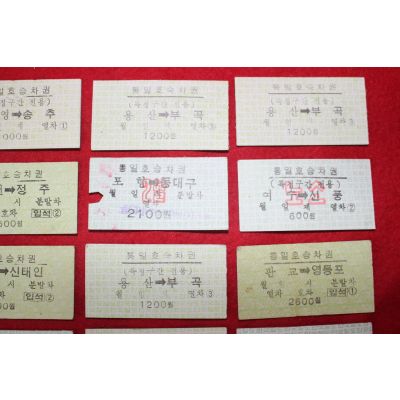 통일호승차권
(특정구간 전용)
➡송 추
월 일 열차①
통일호승차권
(특정구간 전용)
용 산➡부 곡
월 일 열차③
1200원
통일호승차권
(특정구간 전용)
용 산➡부 곡
월 일 열차③
1200원
호승차권
➡정 주
시 분발차
호차 입석②
통일호승차권
포 항➡동대구
월 일 시 분발차
2100원
통일호승차권
(특정구간 전용)
➡신 풍
월 일 열차②
600원
호승차권
➡신태인
시 분발차
호차 입석②
통일호승차권
(특정구간 전용)
용 산➡부 곡
월 일 열차③
1200원
통일호승차권
판 교➡영등포
월 일 시 분발차
열차 호차 입석①
2600원